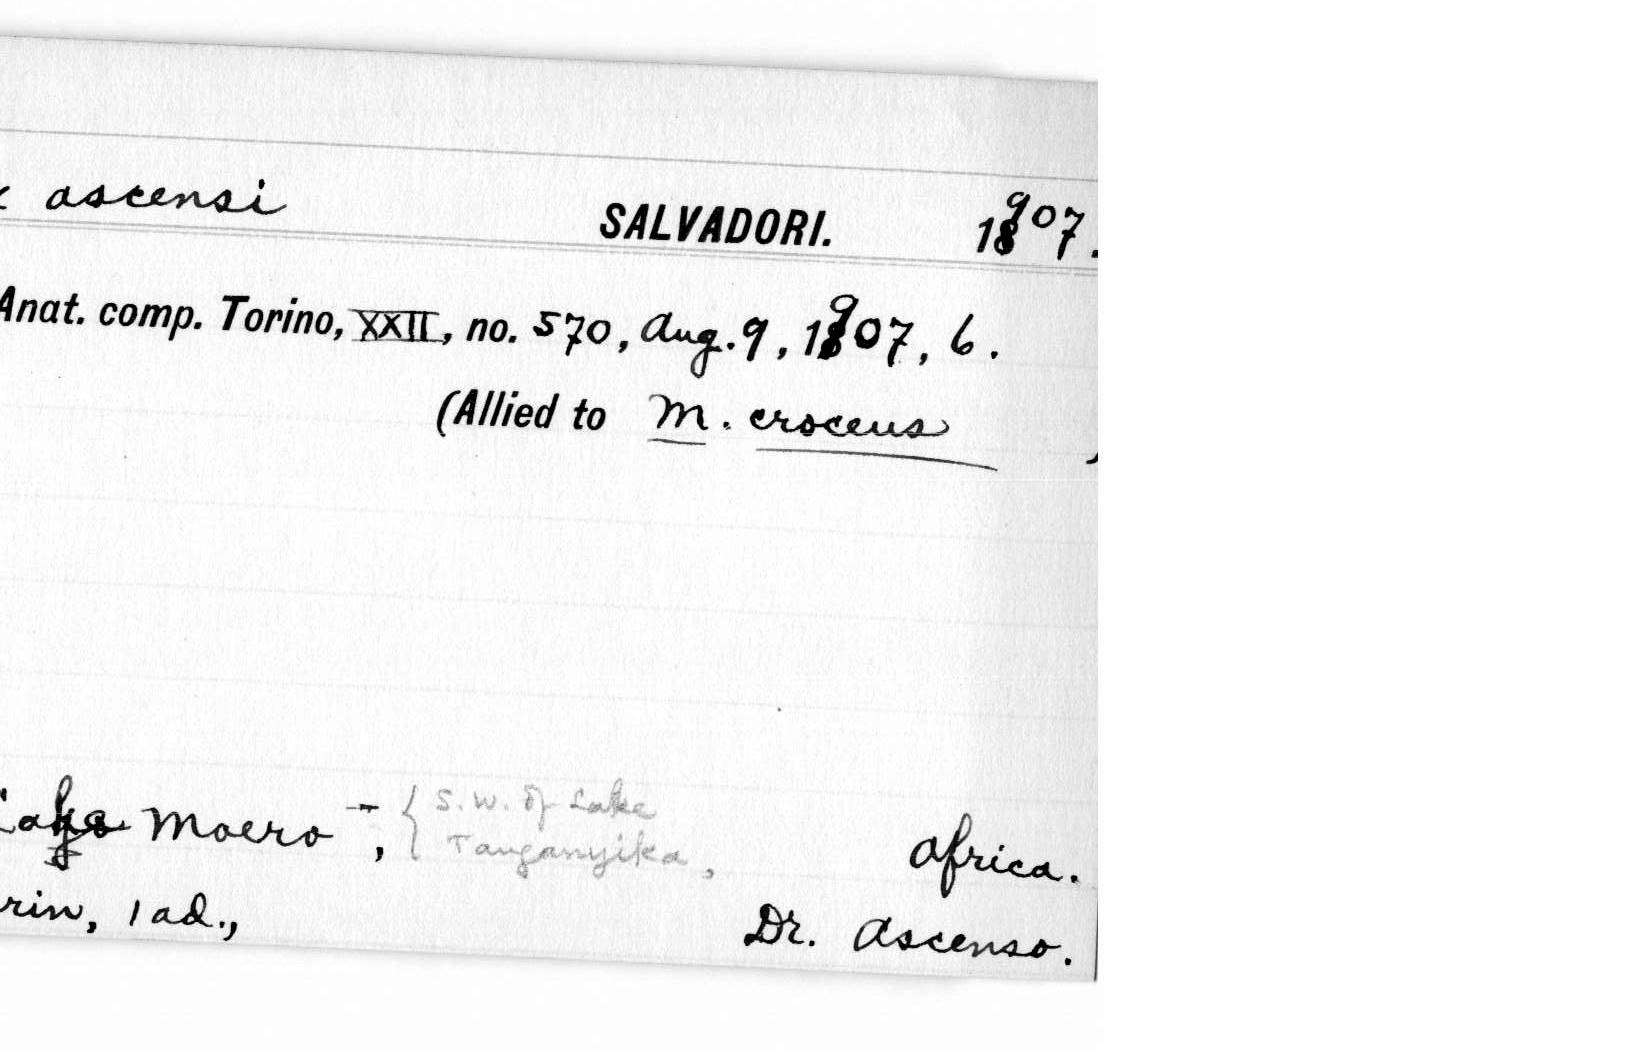 ascensi SALVADORI. 1907.
Anat. comp. Torino, XXII, no. 570, Aug. 9, 1907, 6.
(Allied to M. croceus )
Moero –, { S. W. of Lake
Tanganyika, Africa.
rin, 1 ad., Dr. Ascenso.